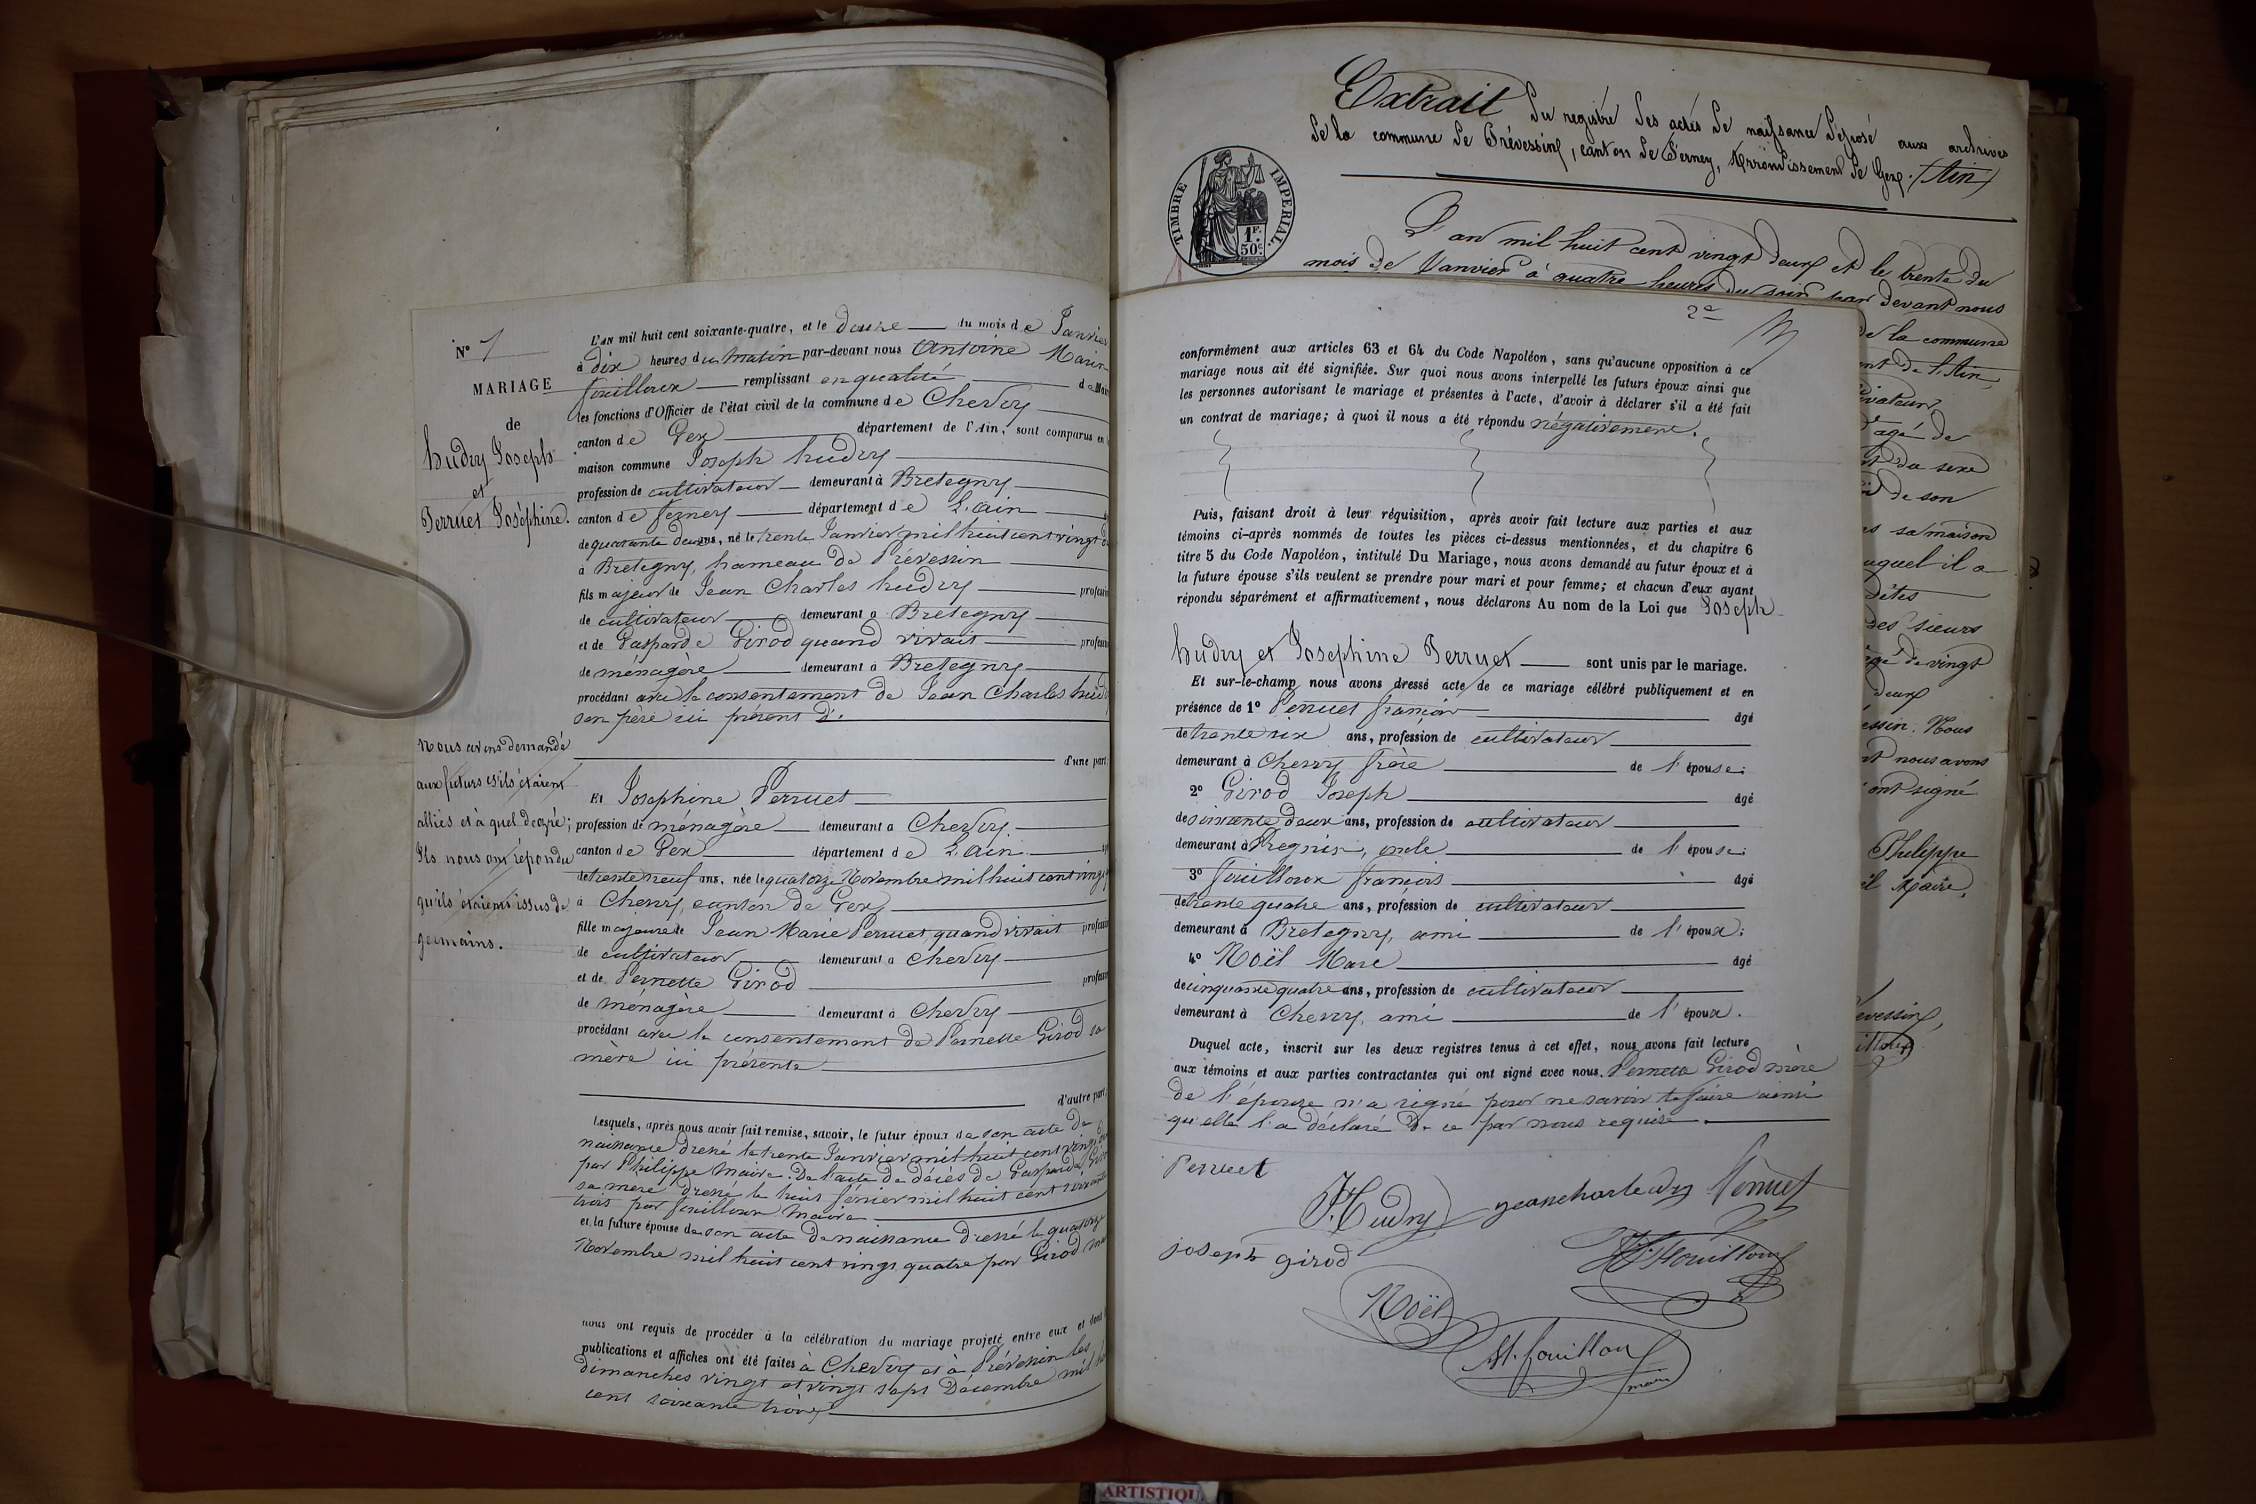 N° 1
MARIAGE
de
hudry Joseph
et
Perruet Joséphine.
Nous avons demandé
aux futurs s'ils étaient
alliés et à quel degré;
Ils nous ont répondu
qu'ils étaient issus de
germains.
L'AN mil huit cent soixante-quatre, et le douze du mois de Janvier
à dix heures du matin par-devant nous Antoine Marin
fouilloux remplissant en qualité de Mai
les fonctions d'Officier de l'état civil de la commune de Chevry
canton de Gex département de l'Ain, sont comparus en
maison commune Joseph hudry
profession de cultivateur demeurant à Bretegny
canton de ferney département de L'ain
de quarante deux ans, né le trente Janvier mil huit cent vingt d
à Bretegny, hameau de Prévessin
fils majeur de Jean Charles hudry profession
de cultivateur demeurant à Bretegny
et de Gasparde Girod quand vivait profession
de ménagère demeurant à Bretegny
procédant avec le consentement de Jean Charles hud
son père ici présent
d'une part,
Et Josephine Perruet
profession de ménagère demeurant à Chevry
canton de Gex département de L'ain
de trente neuf ans, née le quatorze Novembre mil huit cent vingt q
à Chevry, canton de Gex
fille majeure de Jean Marie Perruet quand vivait profession
de cultivateur demeurant à Chevry
et de Pernette Girod profession
de ménagère demeurant à Chevry
procédant avec le consentement de Pernette Girod sa
mère ici présente
d'autre part,
Lesquels, après nous avoir fait remise, savoir, le futur époux de son acte de
naissance dressé le trente Janvier mil huit cent vingt
par Philippe Maire. De l'acte de décès de Gasparde Girod
sa mère dressé le huit février mil huit cent soixante
trois par fouilloux Maire
et la future épouse de son acte de naissance dressé le quatorze
Novembre mil huit cent vingt quatre par Girod ma
nous ont requis de procéder à la célébration du mariage projeté entre eux et dont
publications et affiches ont été faites à Chevry et à Prévessin les
dimanches vingt et vingt sept Décembre mil hu
cent soixante trois
Extrait du registre des actes de naissance déposé aux archives
de la commune de Prévessin, canton de Ferney, Arrondissement de Gex. (Ain)
TIMBRE IMPERIAL.
1F. 50c.
L'an mil huit cent vingt deux et le trente du
mois de Janvier à quatre heures du soir par devant nous
de la commune
nt de l'Ain,
ivateur
agé de
du sexe
de son
es sa maison
uquel il a
dêtes
des sieurs
agé de vingt
deux
essin. Nous
nt nous avons
ont signé
Philippe
Maire,
evessin,
2e
conformément aux articles 63 et 64 du Code Napoléon, sans qu'aucune opposition à ce
mariage nous ait été signifiée. Sur quoi nous avons interpellé les futurs époux ainsi que
les personnes autorisant le mariage et présentes à l'acte, d'avoir à déclarer s'il a été fait
un contrat de mariage; à quoi il nous a été répondu négativement.
Puis, faisant droit à leur réquisition, après avoir fait lecture aux parties et aux
témoins ci-après nommés de toutes les pièces ci-dessus mentionnées, et du chapitre 6
titre 5 du Code Napoléon, intitulé Du Mariage, nous avons demandé au futur époux et à
la future épouse s'ils veulent se prendre pour mari et pour femme; et chacun d'eux ayant
répondu séparément et affirmativement, nous déclarons Au nom de la Loi que Joseph
hudry et Josephine Perruet sont unis par le mariage.
Et sur-le-champ nous avons dressé acte de ce mariage célébré publiquement et en
présence de 1° Perruet françois âgé
de trente six ans, profession de cultivateur
demeurant à Chevry frère de l'épouse;
2° Girod Joseph âgé
de soixante deux ans, profession de cultivateur
demeurant à Pregnin, oncle de l'épouse;
3° fouilloux francois âgé
de trente quatre ans, profession de cultivateur
demeurant à Bretegny, ami de l'époux;
4° Noël Marc âgé
de cinquante quatre ans, profession de cultivateur
demeurant à Chevry, ami de l'époux.
Duquel acte, inscrit sur les deux registres tenus à cet effet, nous avons fait lecture
aux témoins et aux parties contractantes qui ont signé avec nous. Pernette Girod mère
de l'épouse n'a signé pour ne savoir le faire ainsi
qu'elle l'a déclaré de ce par nous requise.
Perruet
J. Hudry
Perruet
joseph girod
Noël
fouilloux
maire
ARTISTIQU